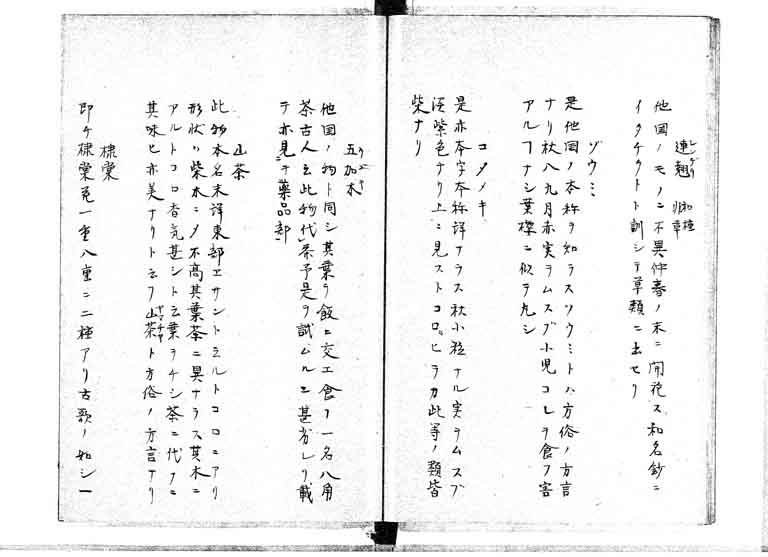 連翹
他国ノモノニ不異仲春ノ末ニ開花ス和名鈔ニ
イタチクサト訓シテ草類ニ出セリ
ゾウミ
是他国ノ本称ヲ知ラスソウミトハ方俗ノ方言
ナリ秋八九月赤実ヲムスブ小児コレヲ食フ害
アルヿナシ葉櫟ニ似テ丸シ
コメノキ
是亦本字本称詳ナラス秋小粒ナル実ヲムスブ
淡紫色ナリ上ニ見ストコロノヒラカ此等ノ類皆
柴ナリ
五加木
他国ノ物ト同シ其葉ヲ飯ニ交エ食フ一名八角
茶古人云此物代茶予是ヲ試ムルニ甚劣レリ載
テ亦見于薬品部
山茶
此物本名未詳東部ヱサント云ルトコロニアリ
形状ハ柴木ニメ不高其葉茶ニ異ナラス其木ニ
アルトコロ香気甚シト云葉ヲチシ茶ニ代フニ
其味ヒ亦美ナリト云フ山茶ト方俗ノ方言ナリ
棣棠
即チ棣棠花一重八重ニ二種アリ古歌ノ如シ一